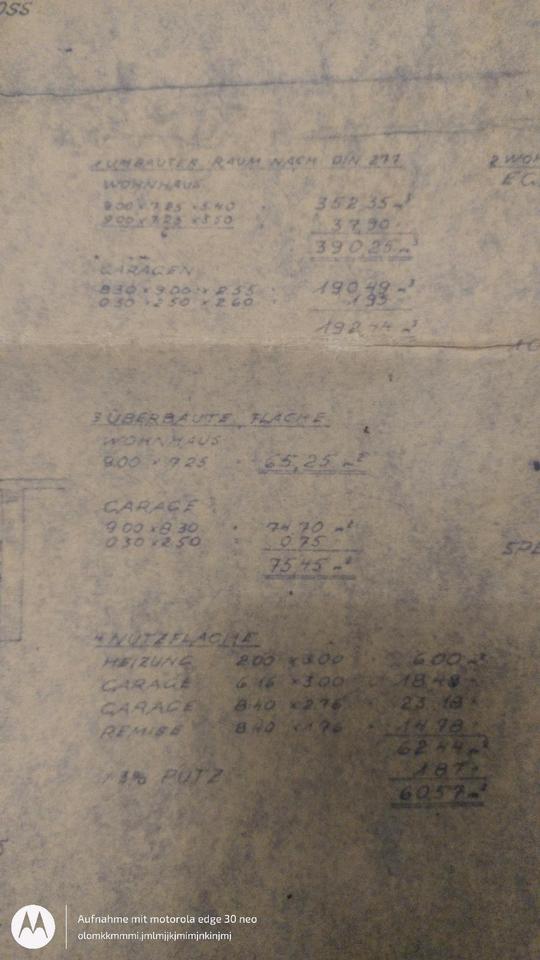 OSS
1 UMBAUTER RAUM NACH DIN 277
WOHNHAUS
9.00 × 7.25 × 5.40 = 352,35 m³
9.00 × 7.25 × 3.50 37,90 "
390,25 m³
GARAGEN
8.30 × 9.00 × 2.55 = 190,49 m³
0.30 × 2.50 × 2.60 = 1,95 "
192,44 m³
2 WOH
EG
3 ÜBERBAUTE FLÄCHE
WOHNHAUS
9.00 × 7.25 = 65,25 m²
GARAGE
9.00 × 8.30 = 74,70 m²
0.30 × 2.50 = 0,75 "
75,45 m²
4 NUTZFLÄCHE
HEIZUNG 2.00 × 3.00 = 6,00 m²
GARAGE 6.16 × 3.00 = 18,48 "
GARAGE 8.40 × 2.76 = 23,18 "
REMISE 8.40 × 1.76 = 14,78 "
62,44 m²
3% PUTZ 1,87 "
60,57 m²
Aufnahme mit motorola edge 30 neo
olomkkmmmi.jmlmjjkjmimjnkinjmj